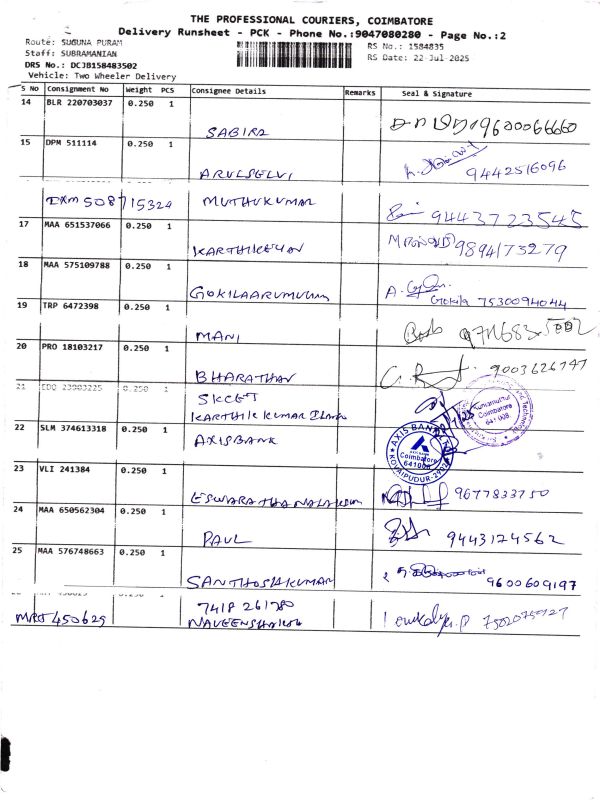 THE PROFESSIONAL COURIERS, COIMBATORE
Delivery Runsheet - PCK - Phone No.:9047080280 - Page No.:2
Route: SUGUNA PURAM
RS No.: 1584835
Staff: SUBRAMANIAN
RS Date: 22-Jul-2025
DRS No.: DCJB158483502
Vehicle: Two Wheeler Delivery
S No Consignment No Weight PCS Consignee Details Remarks Seal & Signature
14 BLR 220703037 0.250 1
SABIRA 9600066660
15 DPM 511114 0.250 1
ARULSELVI 9442516096
IXM 508715324 MUTHUKUMAR
9443723545
17 MAA 651537066 0.250 1
KARTHIKEYAN 9894173279
18 MAA 575109788 0.250 1
GOKILAARUMUGAM Gokila 7530094044
19 TRP 6472398 0.250 1
MANI
20 PRO 18103217 0.250 1
BHARATHAN 9003626747
21 EDQ 23983225 0.250 1 SKCET
KARTHIK KUMAR
22 SLM 374613318 0.250 1 AXISBANK
AXIS BANK
Coimbatore
641008
KOVAIPUDUR
Kuniamuthur
Coimbatore
641 008
23 VLI 241384 0.250 1
9677833750
24 MAA 650562304 0.250 1
PAUL 9443124562
25 MAA 576748663 0.250 1
SANTHOSHKUMAR 9600609197
7418 261780
450629